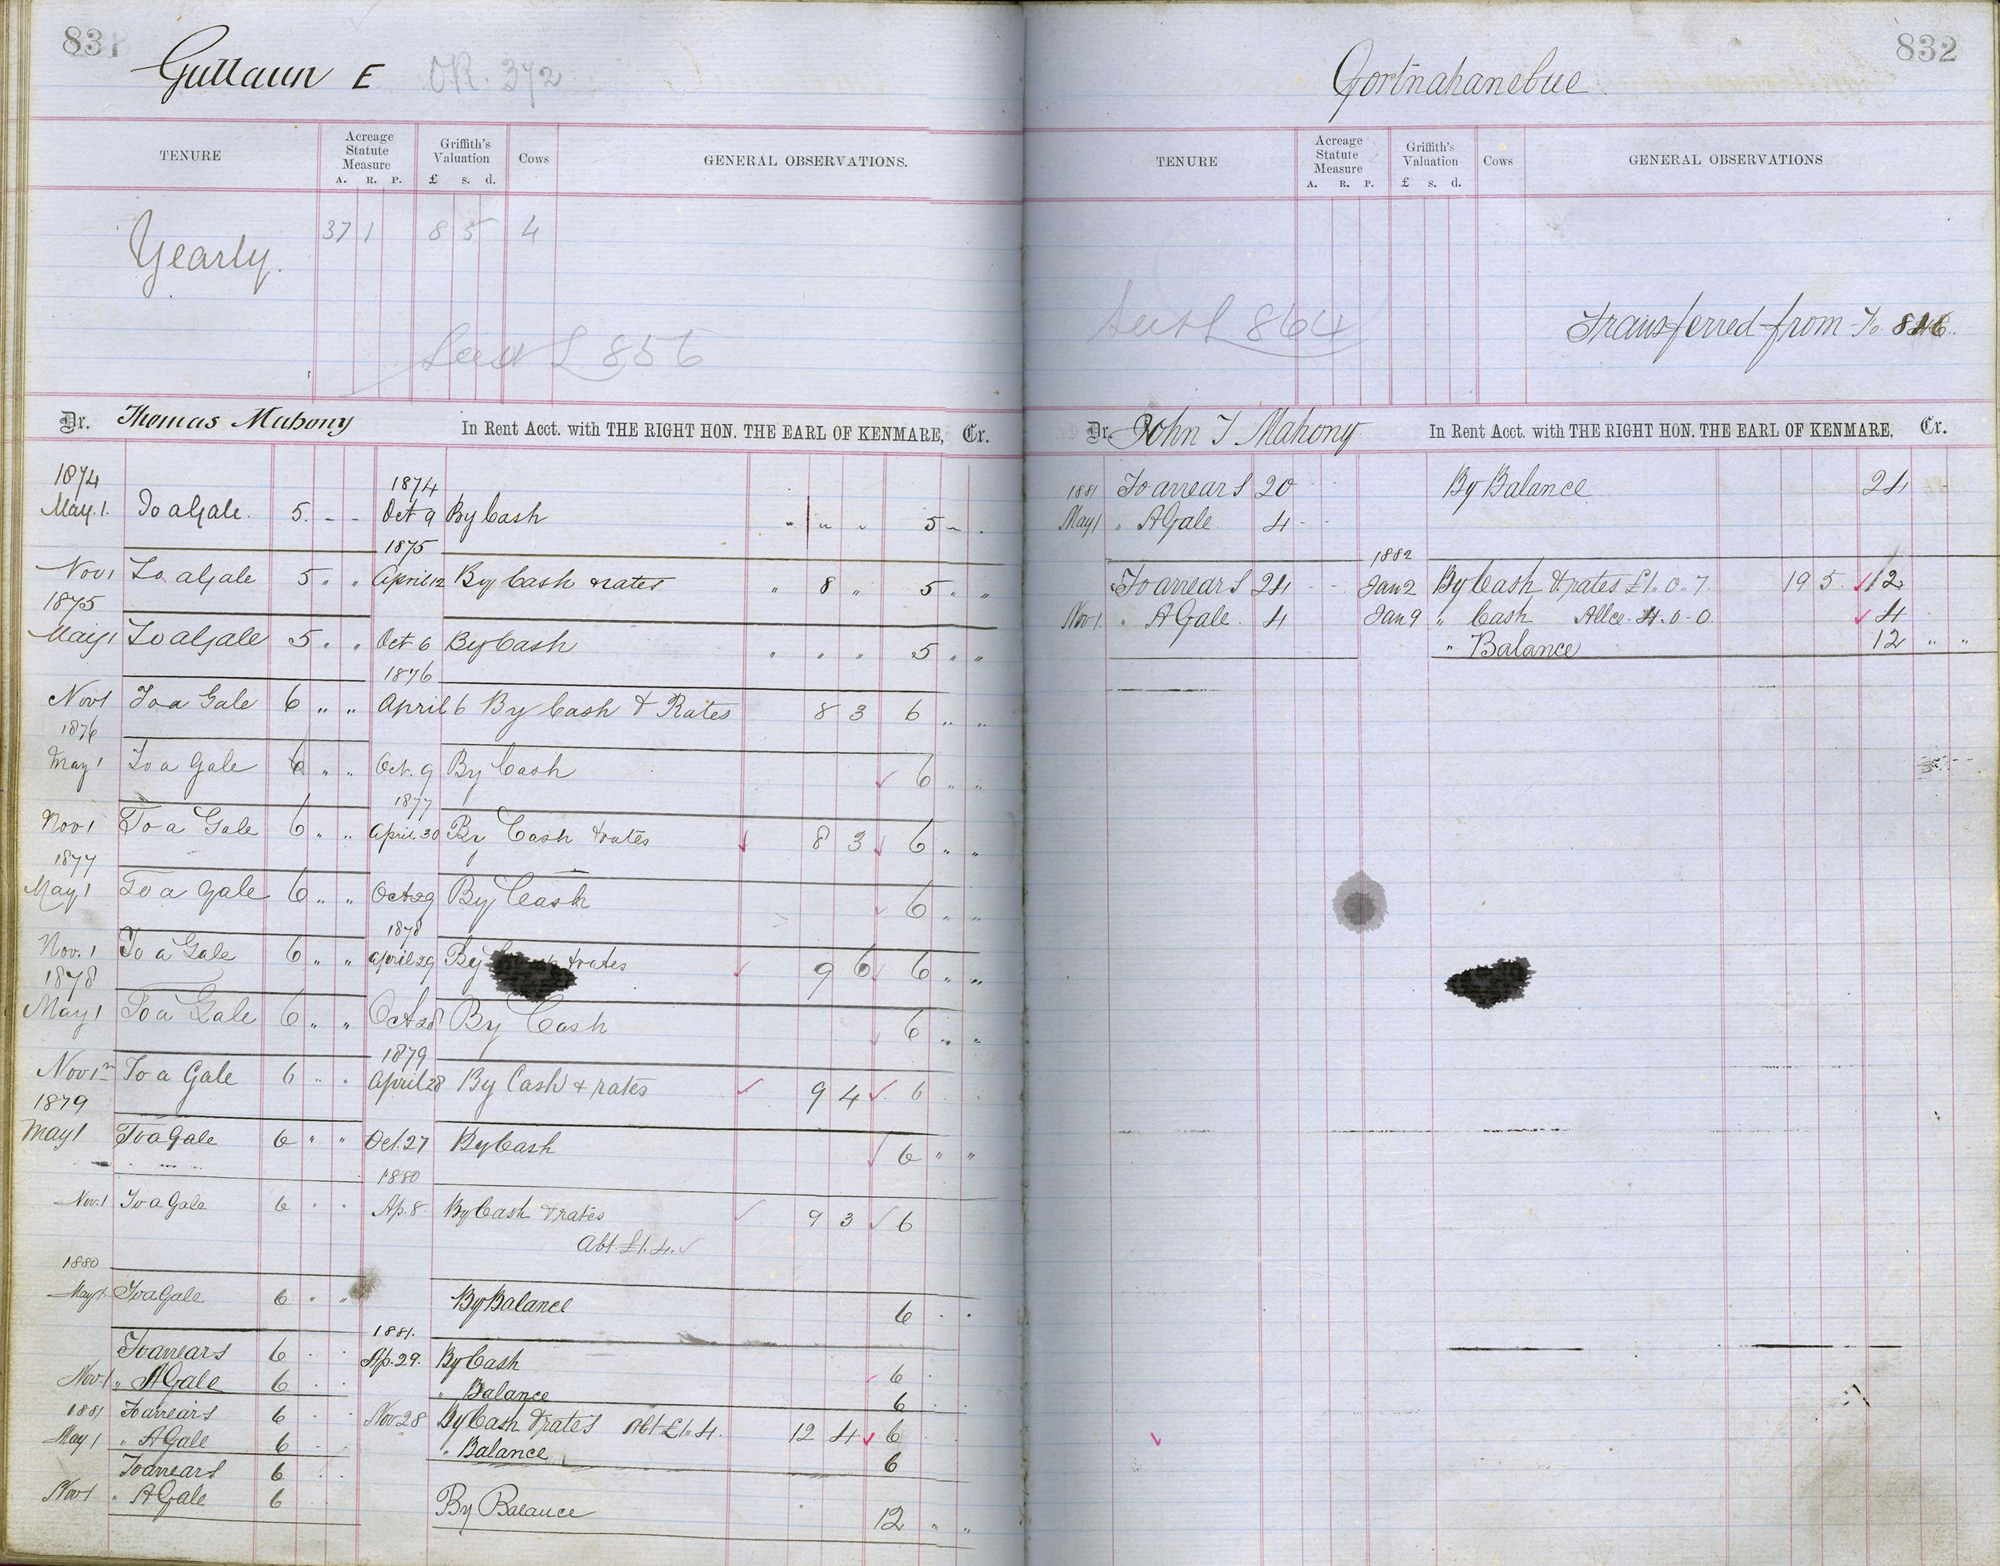 831
Gullaun E OR. 372
TENURE
Acreage Statute Measure
A. R. P.
Griffith's Valuation
£ s. d.
Cows
GENERAL OBSERVATIONS.
Yearly. 37 1 8 5 4
856
Dr. Thomas Mahony In Rent Acct. with THE RIGHT HON. THE EARL OF KENMARE, Cr.
1874 1874
May. 1. To a Gale. 5. - - Oct 9 By Cash " " " 5 - .
1875
Nov 1 To a Gale 5 " " April 12 By Cash & rates " 8 " 5 " "
1875
May 1 To a Gale 5 " " Oct 6 By Cash " " " 5 " "
1876
Nov 1 To a Gale 6 " " April 6 By Cash & Rates 8 3 6 " "
1876
May 1 To a Gale 6 " " Oct. 9 By Cash 6 " "
1877
Nov 1 To a Gale 6 " " April 30 By Cash & rates 8 3 6 " "
1877
May 1 To a Gale 6 " " Oct 29 By Cash 6 " "
1878
Nov. 1 To a Gale 6 " " April 29 By & rates 9 6 6 " "
1878
May 1 To a Gale 6 " " Oct 28 By Cash 6 " "
1879
Nov 1 To a Gale 6 " " April 28 By Cash & rates 9 4 6
1879
May 1 To a Gale 6 " " Oct. 27 By Cash 6 " "
1880
Nov. 1 To a Gale 6 " " Ap. 8 By Cash & rates 9 3 6
Abt. £1.4.
1880
May 1 To a Gale 6 " " By Balance 6
1881.
To arrears 6 Ap. 29. By Cash 6
Nov. 1 " A Gale 6 " Balance 6
1881 To arrears 6 Nov 28 By Cash & rates Abt £1.4. 12 4 6
May 1 " A Gale 6 " Balance 6
To arrears 6
Nov 1 " A Gale 6 By Balance 12 " "
832
Gortnahanebue
TENURE
Acreage Statute Measure
A. R. P.
Griffith's Valuation
£ s. d.
Cows
GENERAL OBSERVATIONS
864
Transferred from Fo
Dr. John T Mahony In Rent Acct. with THE RIGHT HON. THE EARL OF KENMARE, Cr.
1881 To arrears 20 By Balance 24
May 1 " A Gale 4
1882
To arrears 24 Jan 2 By Cash & rates £1.0.7. 19 5 12
Nov 1. " A Gale. 4 Jan 9 " Cash Allce. 4.0-0. 4
" Balance 12 " "